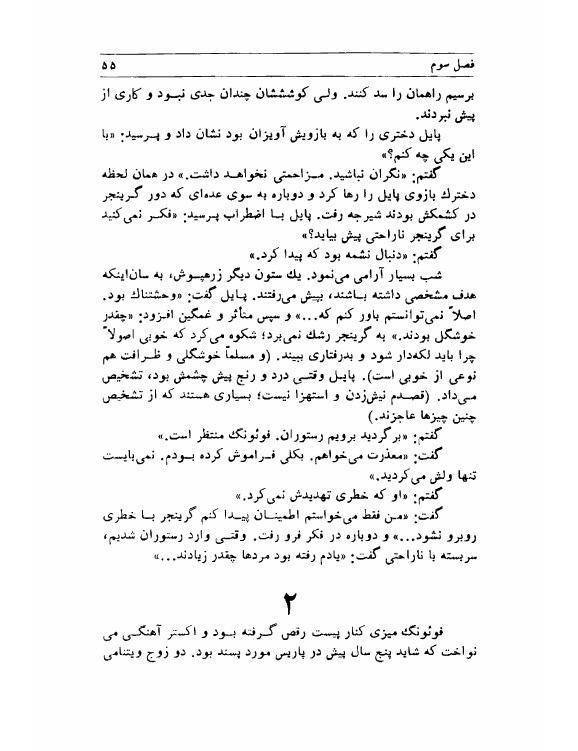 فصل سوم ۵۵
برسیم راهمان را سد کنند. ولی کوششان چندان جدی نبود و کاری از
پیش نبردند.
پایل دختری را که به بازویش آویزان بود نشان داد و پرسید: «با
این یکی چه کنم؟»
گفتم: «نگران نباشید. مزاحمتی نخواهد داشت.» در همان لحظه
دخترك بازوی پایل را رها کرد و دوباره به سوی عده‌ای که دور گرینجر
در کشمکش بودند شیرجه رفت. پایل با اضطراب پرسید: «فکر نمی‌کنید
برای گرینجر ناراحتی پیش بیاید؟»
گفتم: «دنبال نشمه بود که پیدا کرد.»
شب بسیار آرامی می‌نمود. یك ستون دیگر زرهپوش، به سان‌اینکه
هدف مشخصی داشته باشند، بپیش می‌رفتند. پایل گفت: «وحشتناك بود.
اصلاً نمی‌توانستم باور کنم که...» و سپس متأثر و غمگین افزود: «چقدر
خوشگل بودند.» به گرینجر رشك نمی‌برد؛ شکوه می‌کرد که خوبی اصولاً
چرا باید لکه‌دار شود و بدرفتاری ببیند. (و مسلماً خوشگلی و ظرافت هم
نوعی از خوبی است). پایل وقتی درد و رنج پیش چشمش بود، تشخیص
می‌داد. (قصدم نیش‌زدن و استهزا نیست؛ بسیاری هستند که از تشخیص
چنین چیزها عاجزند.)
گفتم: «برگردید برویم رستوران. فوئونگ منتظر است.»
گفت: «معذرت می‌خواهم. بکلی فراموش کرده بودم. نمی‌بایست
تنها ولش می‌کردید.»
گفتم: «او که خطری تهدیدش نمی‌کرد.»
گفت: «من فقط می‌خواستم اطمینان پیدا کنم گرینجر با خطری
روبرو نشود...» و دوباره در فکر فرو رفت. وقتی وارد رستوران شدیم،
سربسته با ناراحتی گفت: «یادم رفته بود مردها چقدر زیادند...»
۲
فوئونگ میزی کنار پیست رقص گرفته بود و اکستر آهنگی می
نواخت که شاید پنج سال پیش در پاریس مورد پسند بود. دو زوج ویتنامی